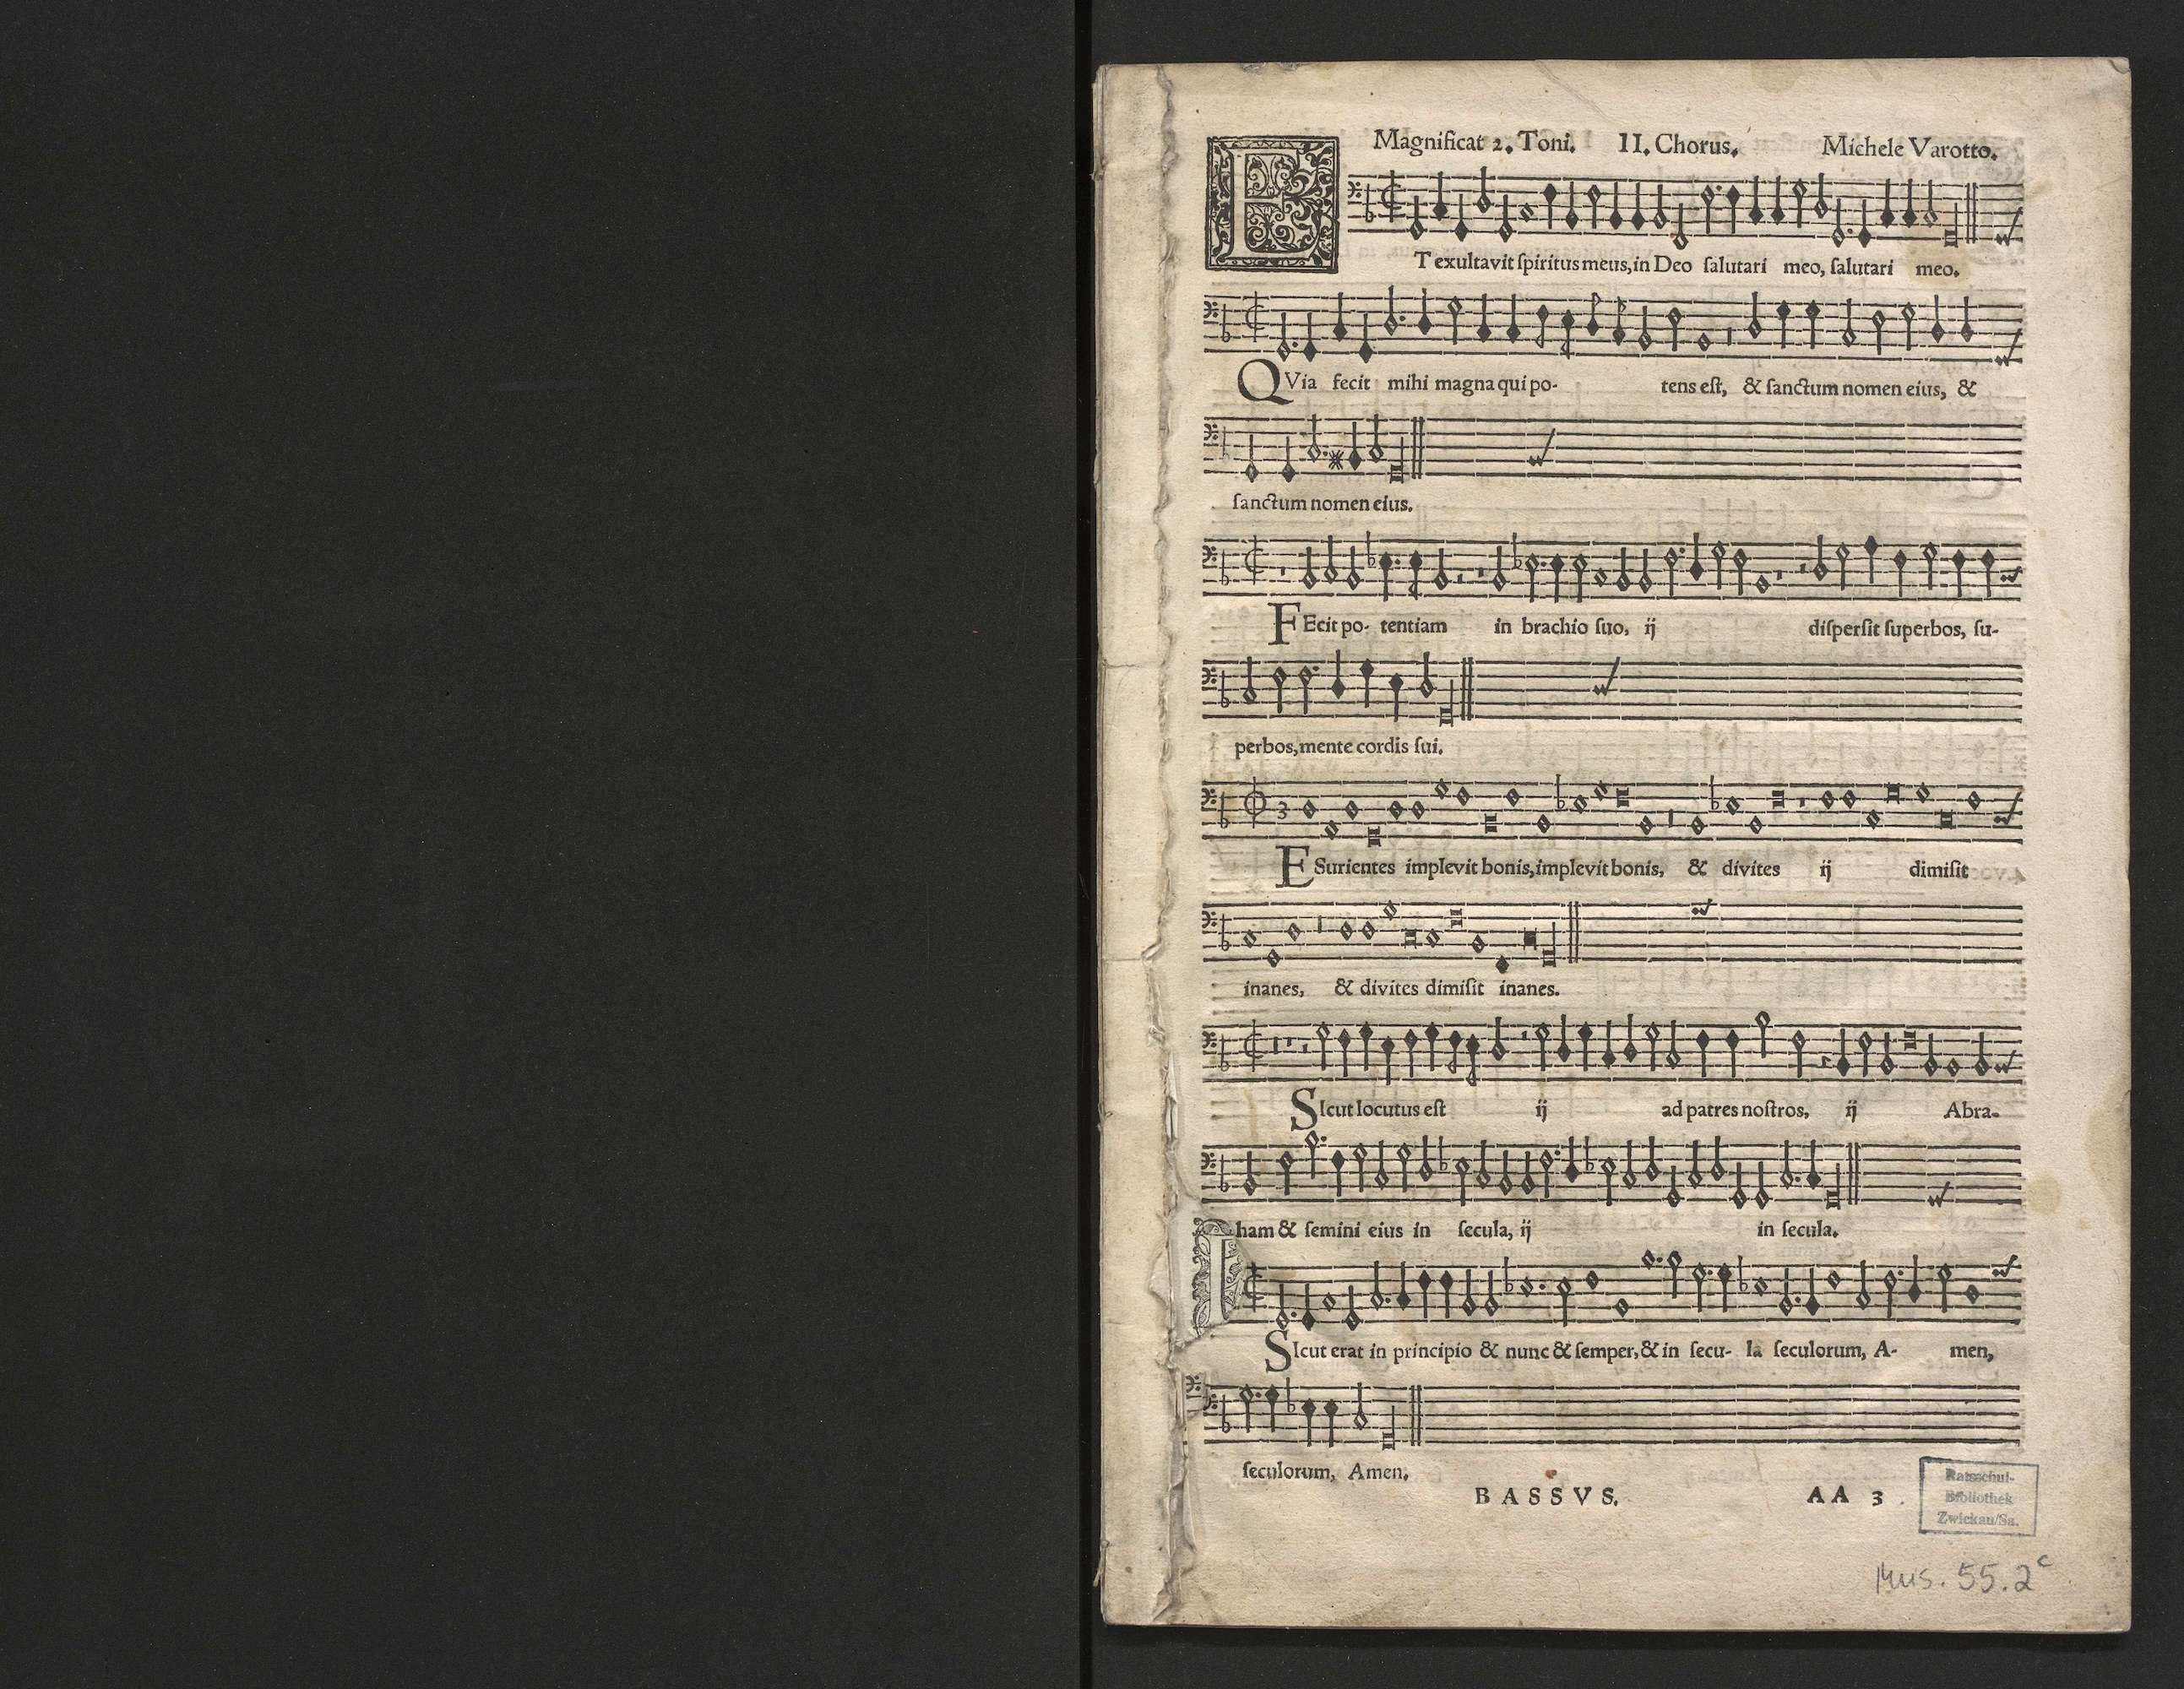 Magnificat 2. Toni. II. Chorus. Michele Varotto.
ET exultavit ſpiritus meus, in Deo ſalutari meo, ſalutari meo.
QVia fecit mihi magna qui po- tens eſt, & ſanctum nomen eius, &
ſanctum nomen eius.
FEcit po- tentiam in brachio ſuo, ij diſperſit ſuperbos, ſu-
perbos, mente cordis ſui.
3
ESurientes implevit bonis, implevit bonis, & divites ij dimiſit
inanes, & divites dimiſit inanes.
SIcut locutus eſt ij ad patres noſtros, ij Abra-
ham & ſemini eius in ſecula, ij in ſecula.
SIcut erat in principio & nunc & ſemper, & in ſecu- la ſeculorum, A- men,
ſeculorum, Amen.
BASSVS. AA 3
Ratsschul-
Bibliothek
Zwickau/Sa.
Mus. 55.2c